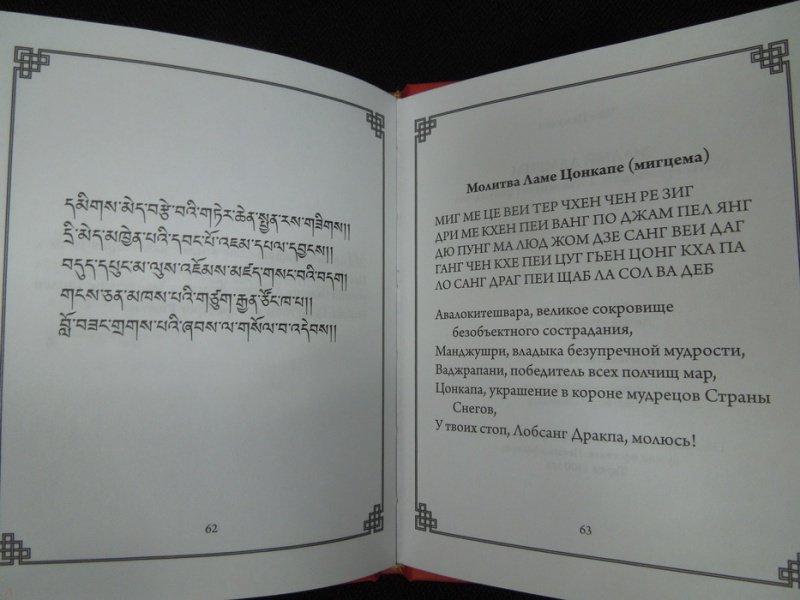 དམིགས་མེད་བརྩེ་བའི་གཏེར་ཆེན་སྤྱན་རས་གཟིགས།།
དྲི་མེད་མཁྱེན་པའི་དབང་པོ་འཇམ་དཔལ་དབྱངས།།
བདུད་དཔུང་མ་ལུས་འཇོམས་མཛད་གསང་བའི་བདག།
གངས་ཅན་མཁས་པའི་གཙུག་རྒྱན་ཙོང་ཁ་པ།།
བློ་བཟང་གྲགས་པའི་ཞབས་ལ་གསོལ་བ་འདེབས།།
62
Молитва Ламе Цонкапе (мигцема)
МИГ МЕ ЦЕ ВЕИ ТЕР ЧХЕН ЧЕН РЕ ЗИГ
ДРИ МЕ КХЕН ПЕИ ВАНГ ПО ДЖАМ ПЕЛ ЯНГ
ДЮ ПУНГ МА ЛЮД ЖОМ ДЗЕ САНГ ВЕИ ДАГ
ГАНГ ЧЕН КХЕ ПЕИ ЦУГ ГЬЕН ЦОНГ КХА ПА
ЛО САНГ ДРАГ ПЕИ ЩАБ ЛА СОЛ ВА ДЕБ
Авалокитешвара, великое сокровище
безобъектного сострадания,
Манджушри, владыка безупречной мудрости,
Ваджрапани, победитель всех полчищ мар,
Цонкапа, украшение в короне мудрецов Страны
Снегов,
У твоих стоп, Лобсанг Дракпа, молюсь!
63